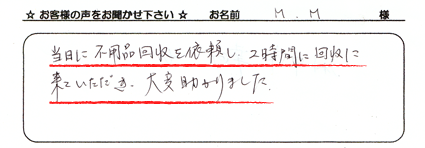 ☆ お客様の声をお聞かせ下さい ☆ お名前 M.M 様
当日に不用品回収を依頼し、2時間に回収に
来ていただき、大変助かりました。